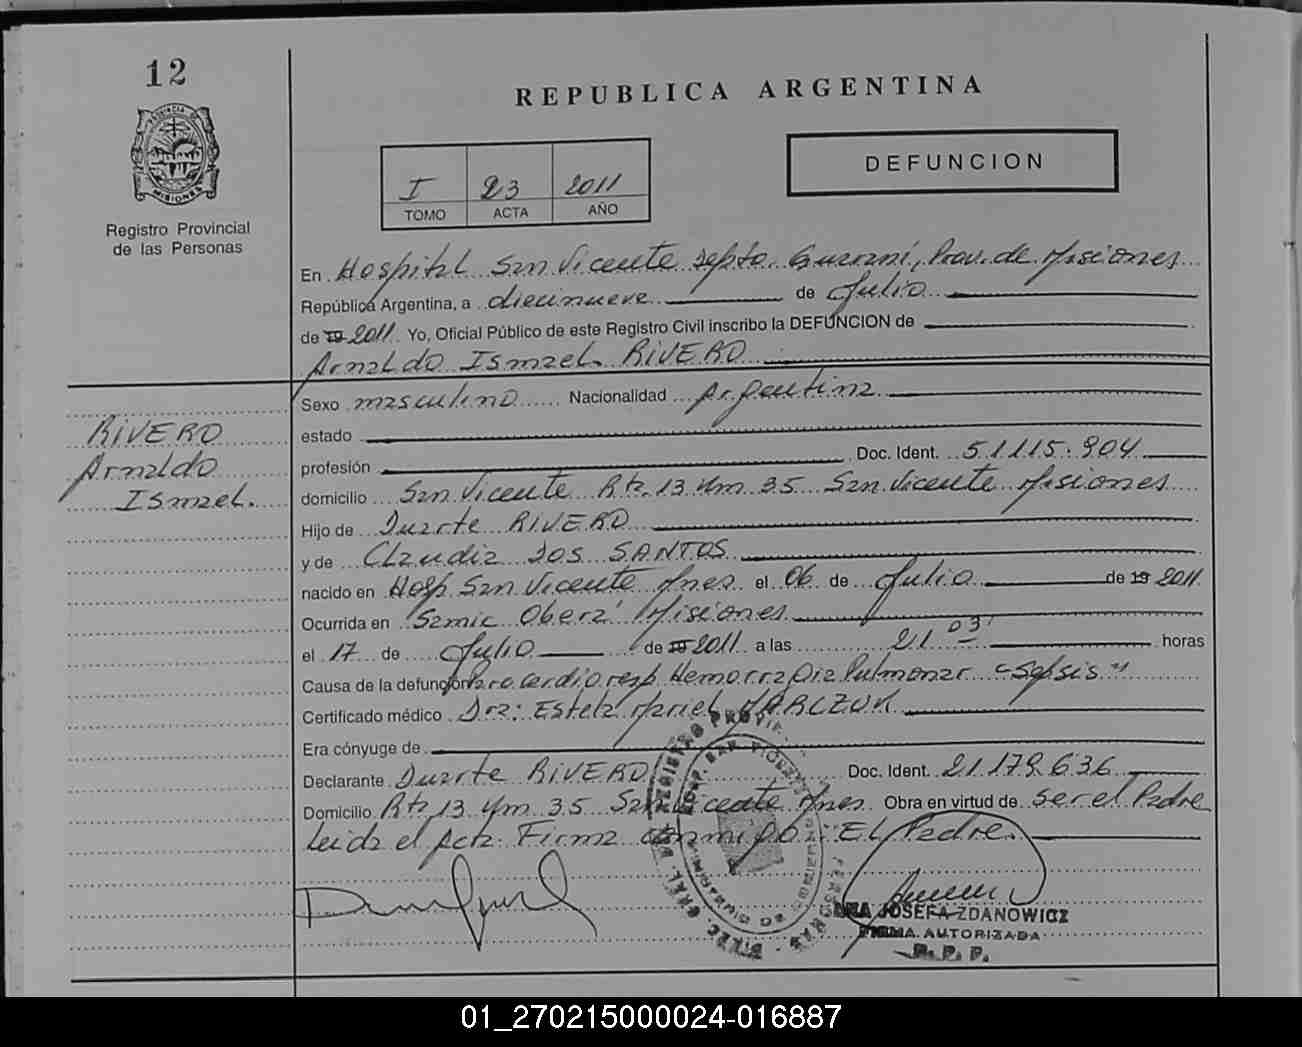 12
REPUBLICA ARGENTINA
PROVINCIA DE
MISIONES
Registro Provincial
de las Personas
I 23 2011
TOMO ACTA AÑO
DEFUNCION
En Hospital San Vicente Depto. Guaraní, Prov. de Misiones
República Argentina, a diecinueve de Julio
de 19 2011 Yo, Oficial Público de este Registro Civil inscribo la DEFUNCION de
Arnaldo Ismael RIVERO
Sexo masculino Nacionalidad Argentina
RIVERO
Arnaldo
Ismael.
estado
profesión Doc. Ident. 51115.904
domicilio San Vicente Rta. 13 Km 35 San Vicente Misiones
Hijo de Duarte RIVERO
y de Claudia DOS SANTOS
nacido en Hosp. San Vicente Mnes. el 06 de Julio de 19 2011
Ocurrida en Samic Oberá Misiones
el 17 de Julio de 19 2011 a las 21 03' horas
Causa de la defunción Paro cardioresp. Hemorragia Pulmonar "Sepsis"
Certificado médico Dra: Estela Mariel
Era cónyuge de
Declarante Duarte RIVERO Doc. Ident. 21.179.636
Domicilio Rta 13 Km 35 San Vicente Mnes Obra en virtud de ser el Padre
Leida el Acta Firma conmigo: El Padre.
JOSEFA ZDANOWICZ
FIRMA AUTORIZADA
R. P. P.
01_270215000024-016887